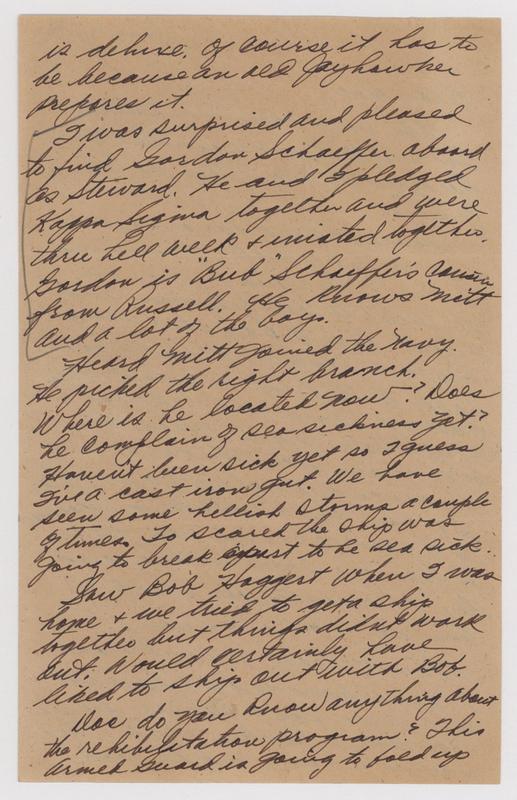 is deluxe. Of course it has to
be because an old Jayhawker
prepares it.
I was surprised and pleased
to find Gordon Schaeffer aboard
as Steward. He and I pledged
Kappa Sigma together and were
thru hell week + iniated together.
Gordon is "Bub" Schaeffer's cousin
from Russell. He knows Mitt
and a lot of the boys.
Heard Mitt joined the Navy.
He picked the right branch.
Where is he located now? Does
he complain of sea sickness yet?
Haven't been sick yet so I guess
I've a cast iron gut. We have
seen some hellish storms a couple
of times. To scared the ship was
going to break apart to be sea sick.
Saw Bob Haggert when I was
home + we tried to get a ship
together but things didn't work
out. Would certainly have
liked to ship out with Bob.
Doc do you know anything about
the rehibilitation program? This
Armed Guard is going to fold up